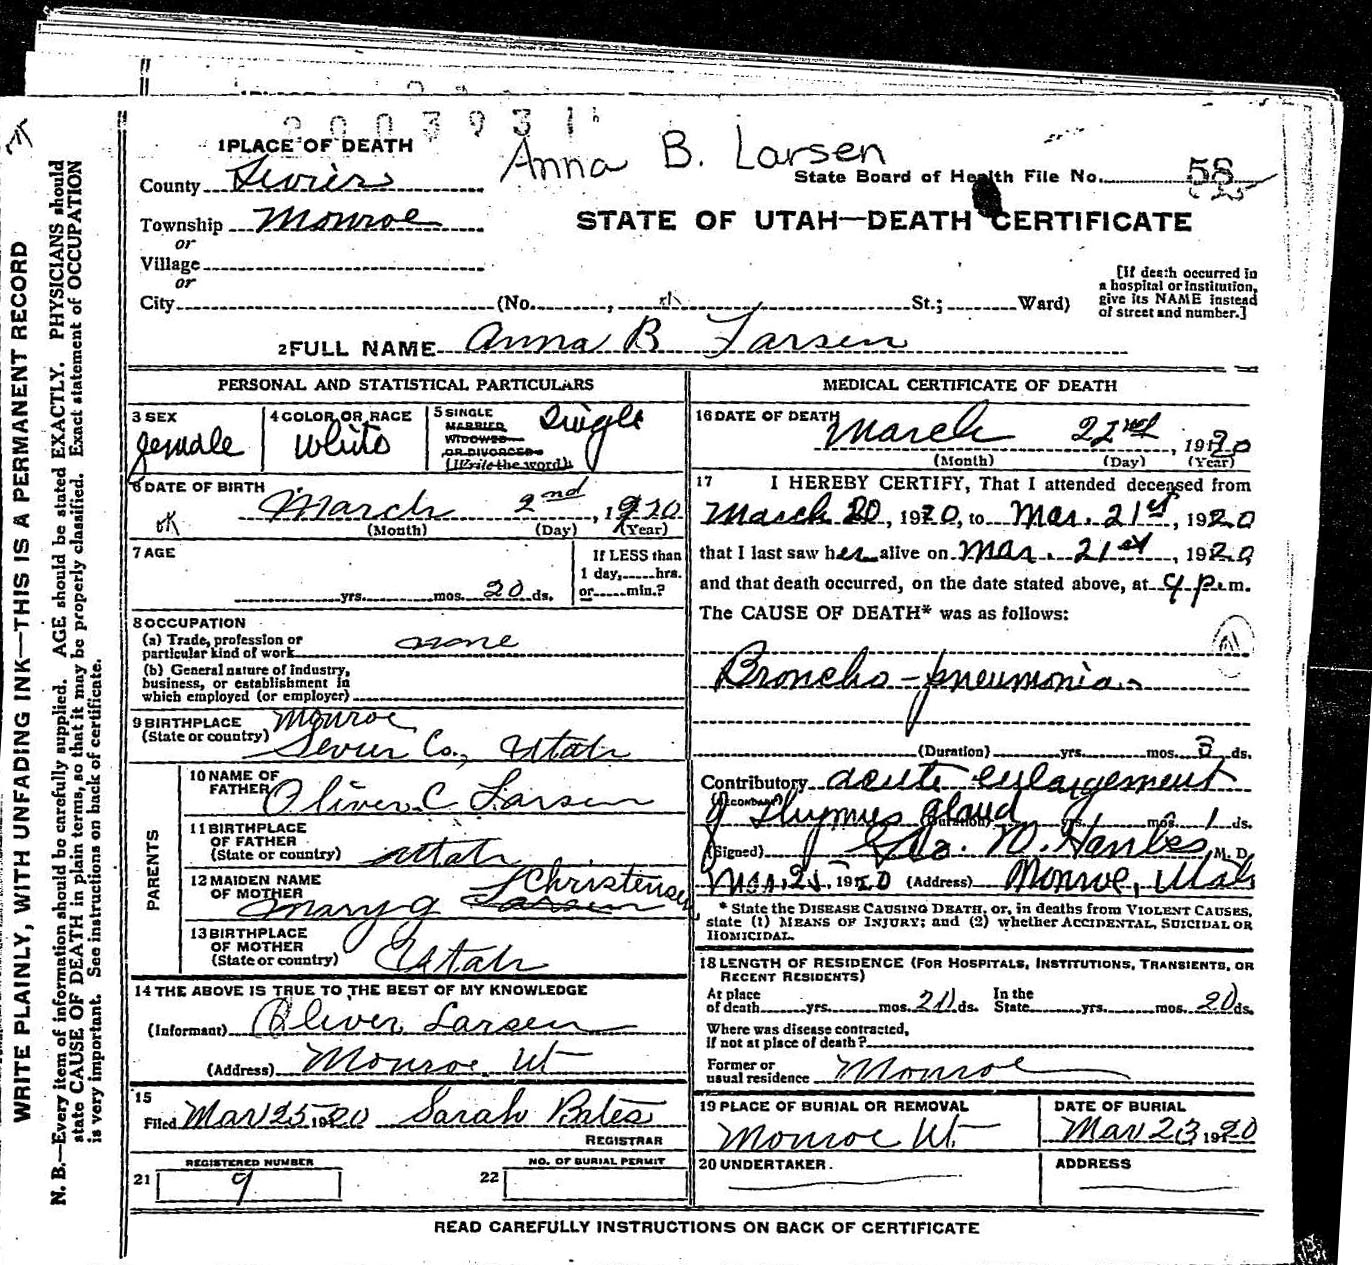 2003931
1 PLACE OF DEATH
Anna B. Larsen
County Sevier
State Board of Health File No. 58
Township Monroe
STATE OF UTAH—DEATH CERTIFICATE
or
Village
or
City (No. , St.; Ward)
[If death occurred in
a hospital or institution,
give its NAME instead
of street and number.]
2 FULL NAME Anna B Larsen
PERSONAL AND STATISTICAL PARTICULARS
3 SEX
female
4 COLOR OR RACE
White
5 SINGLE
MARRIED
WIDOWED
OR DIVORCED
(Write the word)
Single
6 DATE OF BIRTH
March 2nd, 1920
(Month) (Day) (Year)
OK
7 AGE
yrs. mos. 20 ds.
If LESS than
1 day, hrs.
or min.?
8 OCCUPATION
(a) Trade, profession or
particular kind of work none
(b) General nature of industry,
business, or establishment in
which employed (or employer)
9 BIRTHPLACE
(State or country)
Monroe
Sevier Co., Utah
PARENTS
10 NAME OF
FATHER Oliver C Larsen
11 BIRTHPLACE
OF FATHER
(State or country) Utah
12 MAIDEN NAME
OF MOTHER
Mary J Larsen Christensen
13 BIRTHPLACE
OF MOTHER
(State or country) Utah
14 THE ABOVE IS TRUE TO THE BEST OF MY KNOWLEDGE
(Informant) Oliver Larsen
(Address) Monroe Ut
15
Filed Mar 25 1920 Sarah Bates
REGISTRAR
21 REGISTERED NUMBER
9
22 NO. OF BURIAL PERMIT
MEDICAL CERTIFICATE OF DEATH
16 DATE OF DEATH
March 22nd, 1920
(Month) (Day) (Year)
17 I HEREBY CERTIFY, That I attended deceased from
March 20, 1920, to Mar. 21st, 1920
that I last saw her alive on Mar. 21st, 1920
and that death occurred, on the date stated above, at 4 p.m.
The CAUSE OF DEATH* was as follows:
Broncho-pneumonia
(Duration) yrs. mos. ds.
Contributory acute enlargement
(SECONDARY)
of Thymus gland
(Duration) yrs. mos. 1 ds.
(Signed) M. D.
1920 (Address) Monroe, Utah
* State the DISEASE CAUSING DEATH, or, in deaths from VIOLENT CAUSES,
state (1) MEANS OF INJURY; and (2) whether ACCIDENTAL, SUICIDAL OR
HOMICIDAL.
18 LENGTH OF RESIDENCE (FOR HOSPITALS, INSTITUTIONS, TRANSIENTS, OR
RECENT RESIDENTS)
At place
of death yrs. mos. 20 ds.
In the
State yrs. mos. 20 ds.
Where was disease contracted,
if not at place of death?
Former or
usual residence Monroe
19 PLACE OF BURIAL OR REMOVAL
Monroe Ut
DATE OF BURIAL
Mar 23 1920
20 UNDERTAKER
ADDRESS
READ CAREFULLY INSTRUCTIONS ON BACK OF CERTIFICATE
WRITE PLAINLY, WITH UNFADING INK—THIS IS A PERMANENT RECORD
N. B.—Every item of information should be carefully supplied. AGE should be stated EXACTLY. PHYSICIANS should
state CAUSE OF DEATH in plain terms, so that it may be properly classified. Exact statement of OCCUPATION
is very important. See instructions on back of certificate.